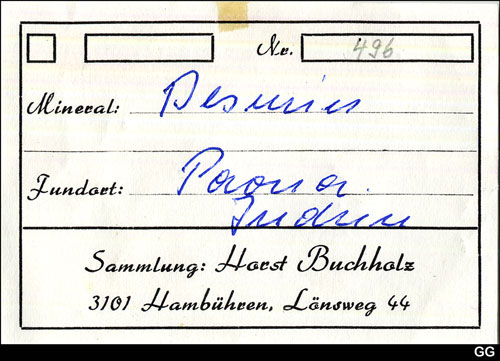 Nr. 496
Mineral: Desmin
Fundort: Poona
Indien
Sammlung: Horst Buchholz
3101 Hambühren, Lönsweg 44
GG